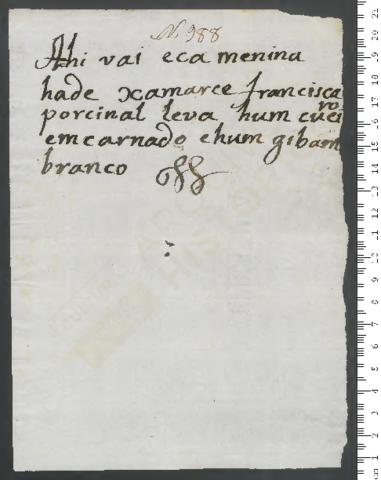 N. 988
Ahi vai eca menina
hade xamarce francisca
porcinal leva hum cuei
ro
emcarnado ehum gibam
branco